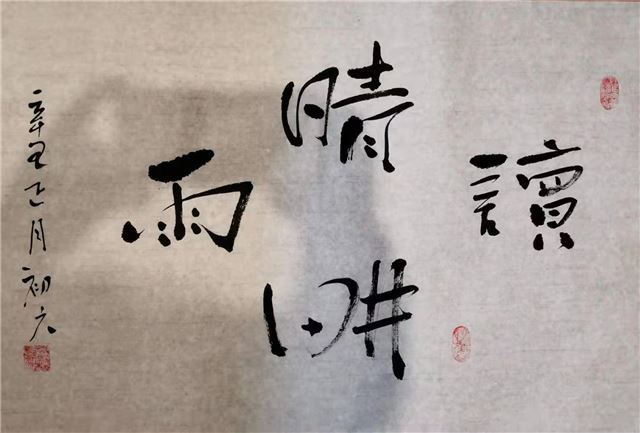 晴畊雨讀
辛丑正月初六